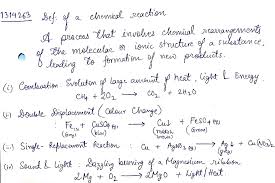 1314263 Def. of a chemical reaction
A process that involves chemical rearrangements
of the molecular or ionic structure of a substance,
leading to formation of new products.
(i) Combustion: Evolution of large amount of heat, Light & Energy
CH4 + 2O2 → CO2 + 2H2O
(ii) Double Displacement (Colour Change)
Fe(s) + CuSO4 → Cu(s) + FeSO4
(grey) (blue) (brown) (green)
(iii) Single-Replacement Reaction: Cu + AgNO3 → Ag↓ +
(iv) Sound & Light: Dazzling burning of a Magnesium ribbon
2Mg + O2 → 2MgO + Light/Heat.